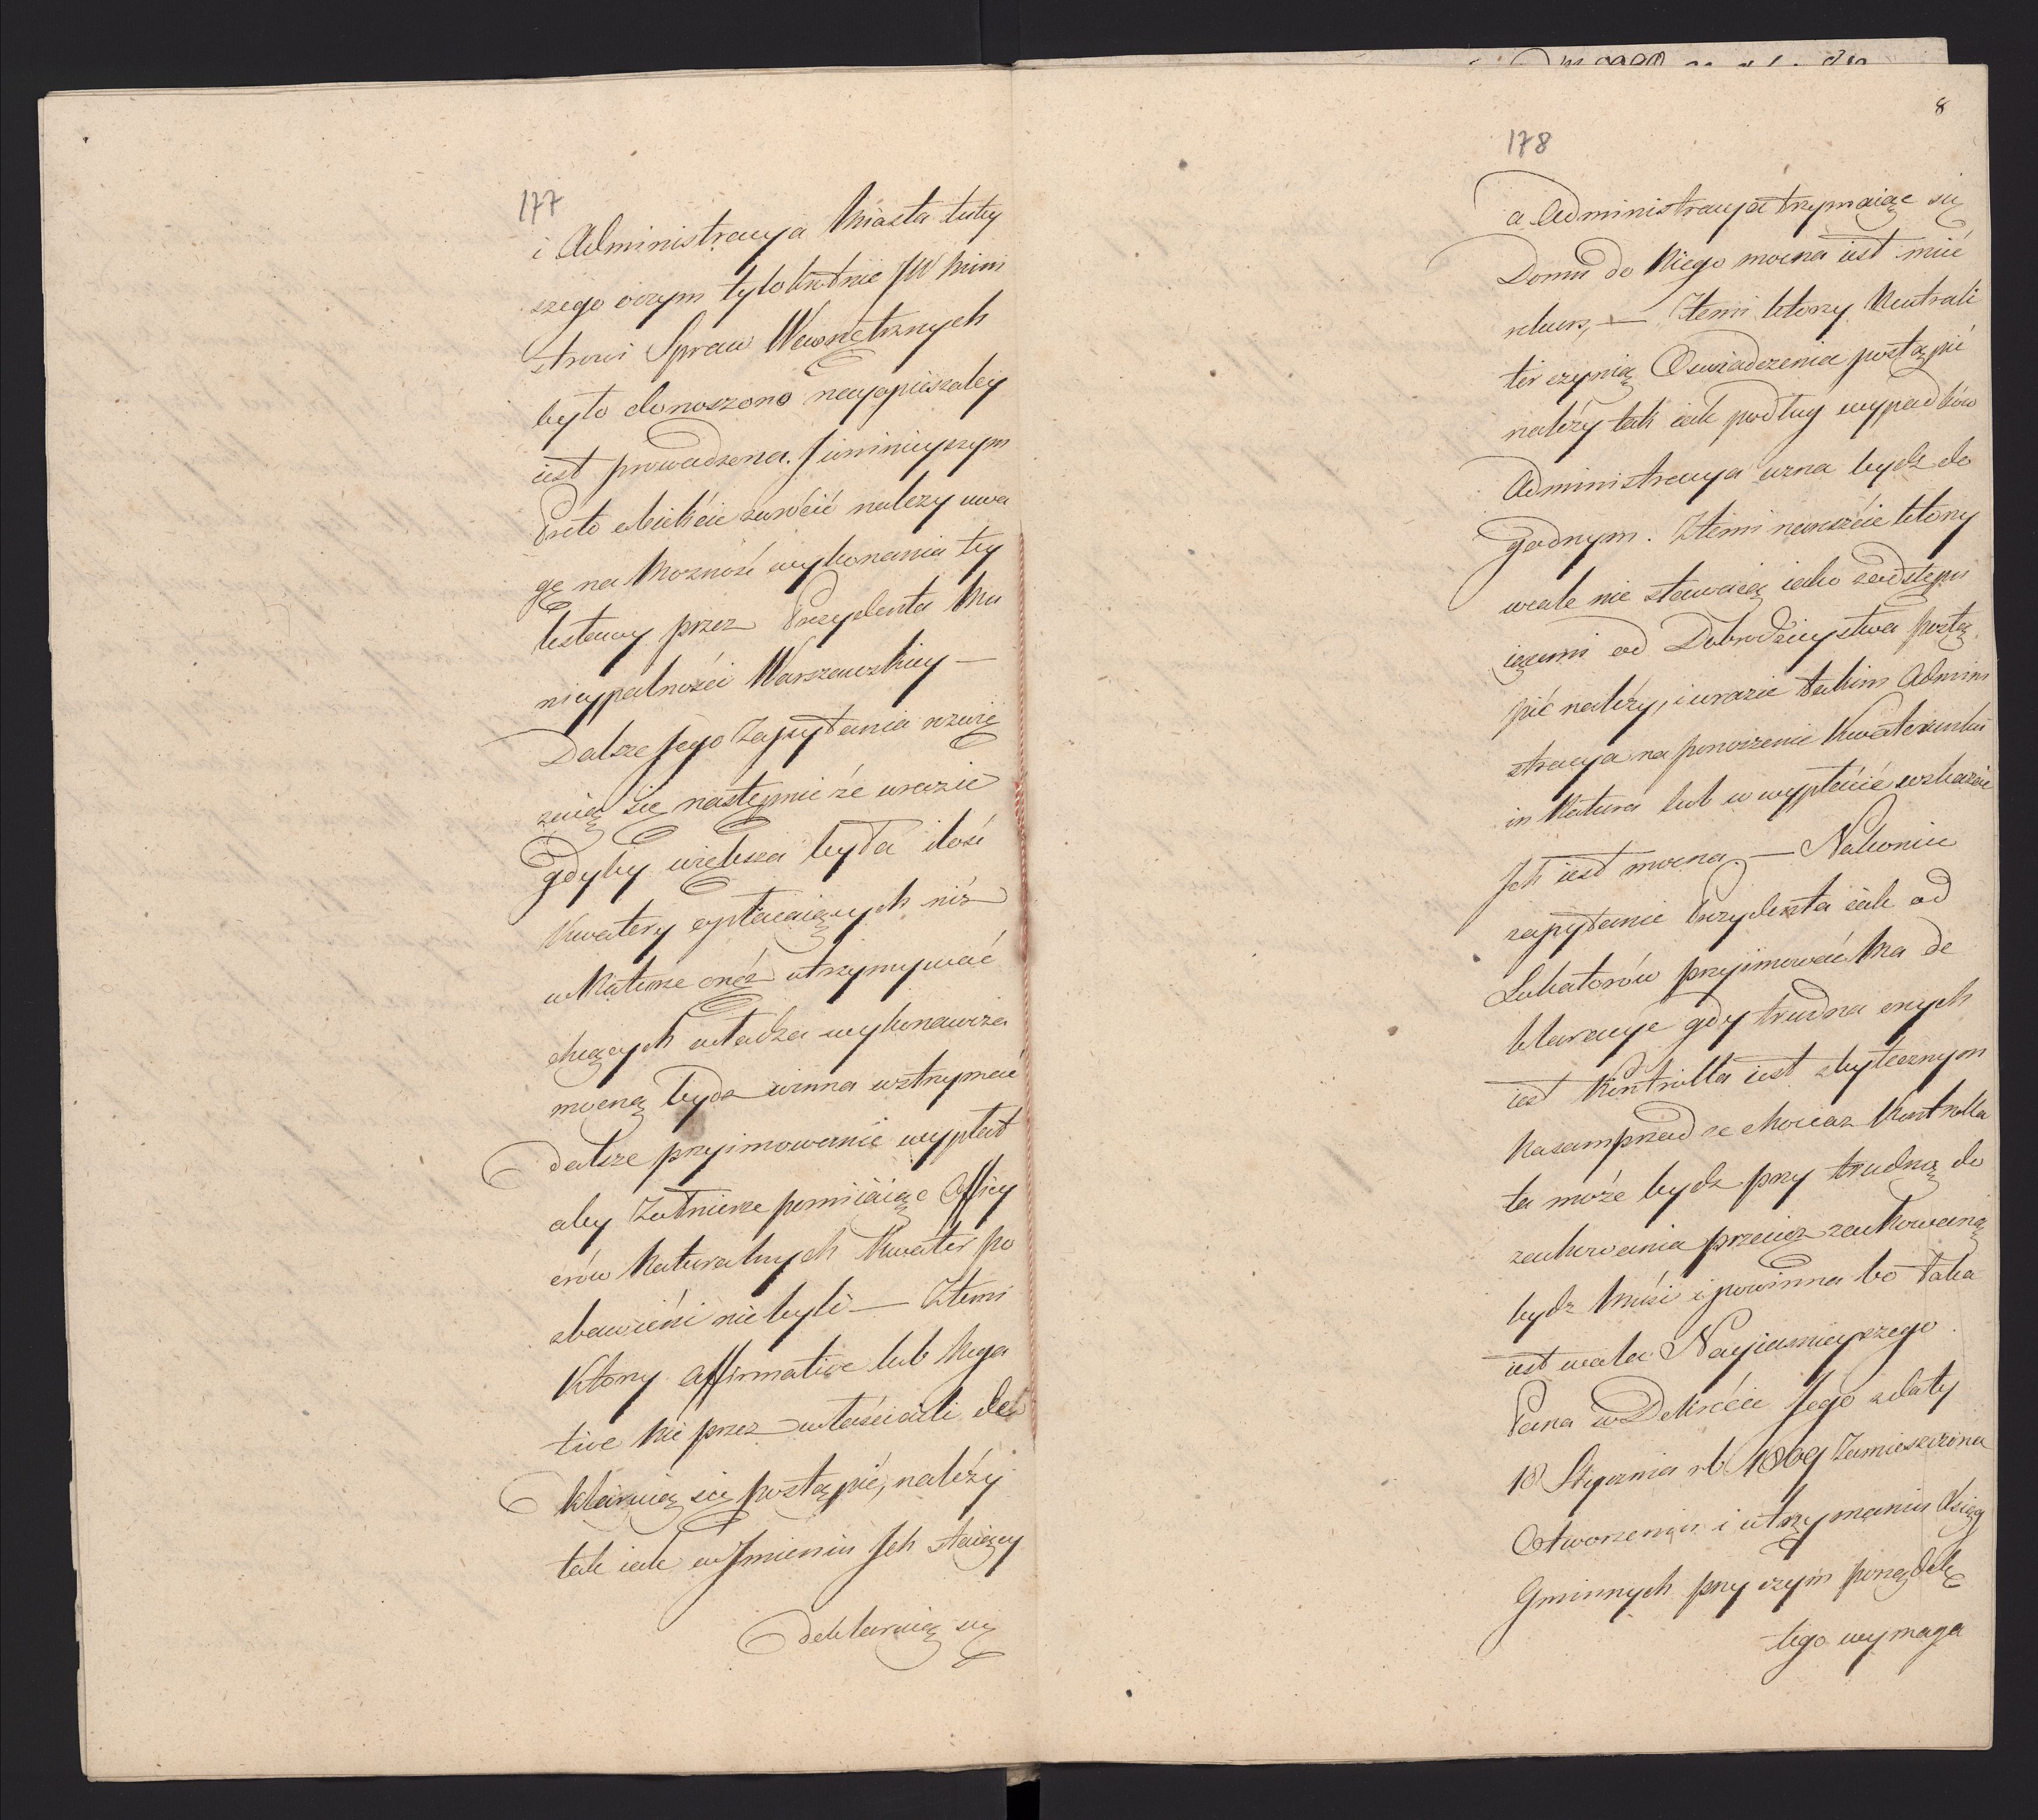 177
i Administracyia Miasta tuty
szego oczym tylokrotnie JW Mini
strowi Spraw Wewnętrznych
było donoszono nayopieszaley
iest prowadzona. J
Prźto obiekcie zwrócić należy uwa
gę na Możność wykonania tey
Ustawy przez Prezydenta Mu
nicypalności Warszawskiey —
Dalsze Jego Zapytania rozwię
zuią się następnie że wrazie
gdyby większa była ilość
Kwatery opłacaiących niż
w Naturze onéż utrzymywać
chcących władza wykonawcza
mocną bydz winna wstrzymać
dalsze przyimowanie wypłat
aby Żołnierze pomiiaiąc Officy
erów Naturalnych Kwater po
zbawieni nie byli — Ztemi
Ktory affirmative lub Nega
tive nie przez właścicieli de
klaruią się postąpić należy
tak iak w Jmieniu Jch staiący
deklaruią się
8
178
a Administracyia trzymaiąc się
Domu do Niego mocna iest mieć
rekurs, — Ztemi ktory Neutrali
ter czynią Oswiadczenia postąpić
należy tak iak podług wypadków
Administracyia uzna bydz do
godnym. Ztemi nareszcie ktory
wcale nie stawaią iako odstępu
iącemi od Dobrodzieystwa postą
pić należy, i wrazie takim Admini
stracya na ponoszenie Kwaterunku
in Natura lub w wypłacie wskazać
Jch iest mocna — Nakoniec
zapytanie Prezydenta iak od
Lokatorów przyimować Ma de
klaracye gdy trudna onych
iest Kontrolla iest zbytecznym
Nasamprzód że chociaz Kontrolla
ta może bydz przy trudną do
zachowania przecież zachowaną
bydz Musi i powinna bo taka
iest wola Nayiasnieyszego
Pana w Dekrécie Jego z daty
18 Stycznia rb 1809 Zamieszczona
Otworzeniu i utrzymaniu Ksiąg
Gminnych przy czym porządek
tego wymaga